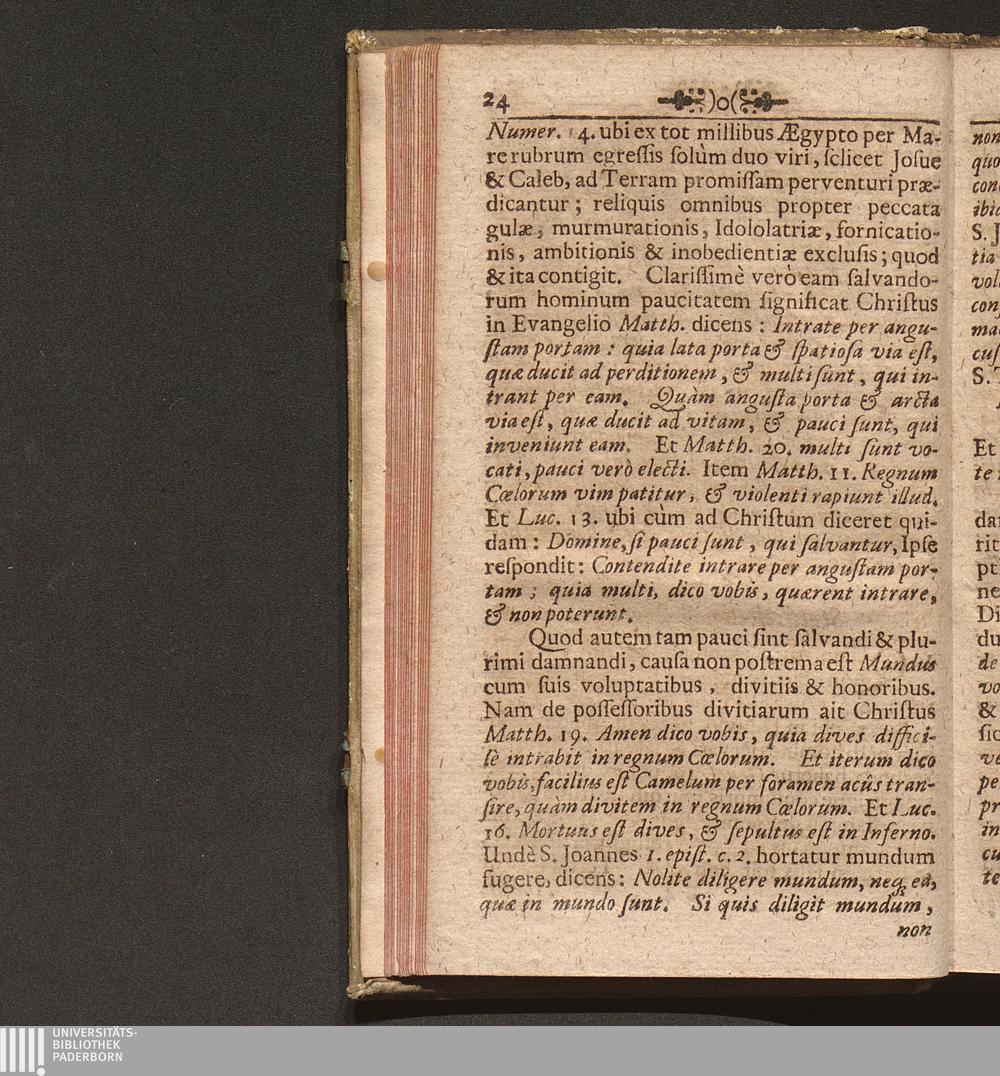 24 )o(
Numer. 14. ubi ex tot millibus Ægypto per Ma-
re rubrum egressis solùm duo viri, sclicet Josue
& Caleb, ad Terram promissam perventuri præ-
dicantur; reliquis omnibus propter peccata
gulæ, murmurationis, Idololatriæ, fornicatio-
nis, ambitionis & inobedientiæ exclusis; quod
& ita contigit. Clarissimè verò eam salvando-
rum hominum paucitatem significat Christus
in Evangelio Matth. dicens: Intrate per angu-
stam portam: quia lata porta & spatiosa via est,
quæ ducit ad perditionem, & multi sunt, qui in-
trant per eam. Quàm angusta porta & arcta
via est, quæ ducit ad vitam, & pauci sunt, qui
inveniunt eam. Et Matth. 20. multi sunt vo-
cati, pauci verò electi. Item Matth. 11. Regnum
Cœlorum vim patitur, & violenti rapiunt illud.
Et Luc. 13. ubi cùm ad Christum diceret qui-
dam: Domine, si pauci sunt, qui salvantur, Ipse
respondit: Contendite intrare per angustam por-
tam; quia multi, dico vobis, quærent intrare,
& non poterunt.
Quod autem tam pauci sint salvandi & plu-
rimi damnandi, causa non postrema est Mundus
cum suis voluptatibus, divitiis & honoribus.
Nam de possessoribus divitiarum ait Christus
Matth. 19. Amen dico vobis, quia dives diffici-
lè intrabit in regnum Cœlorum. Et iterum dico
vobis, facilius est Camelum per foramen acûs tran-
sire, quàm divitem in regnum Cœlorum. Et Luc.
16. Mortuus est dives, & sepultus est in Inferno.
Undè S. Joannes 1. epist. c. 2. hortatur mundum
fugere, dicens: Nolite diligere mundum, neq; ea,
quæ in mundo sunt. Si quis diligit mundum,
non
UNIVERSITÄTS-
BIBLIOTHEK
PADERBORN